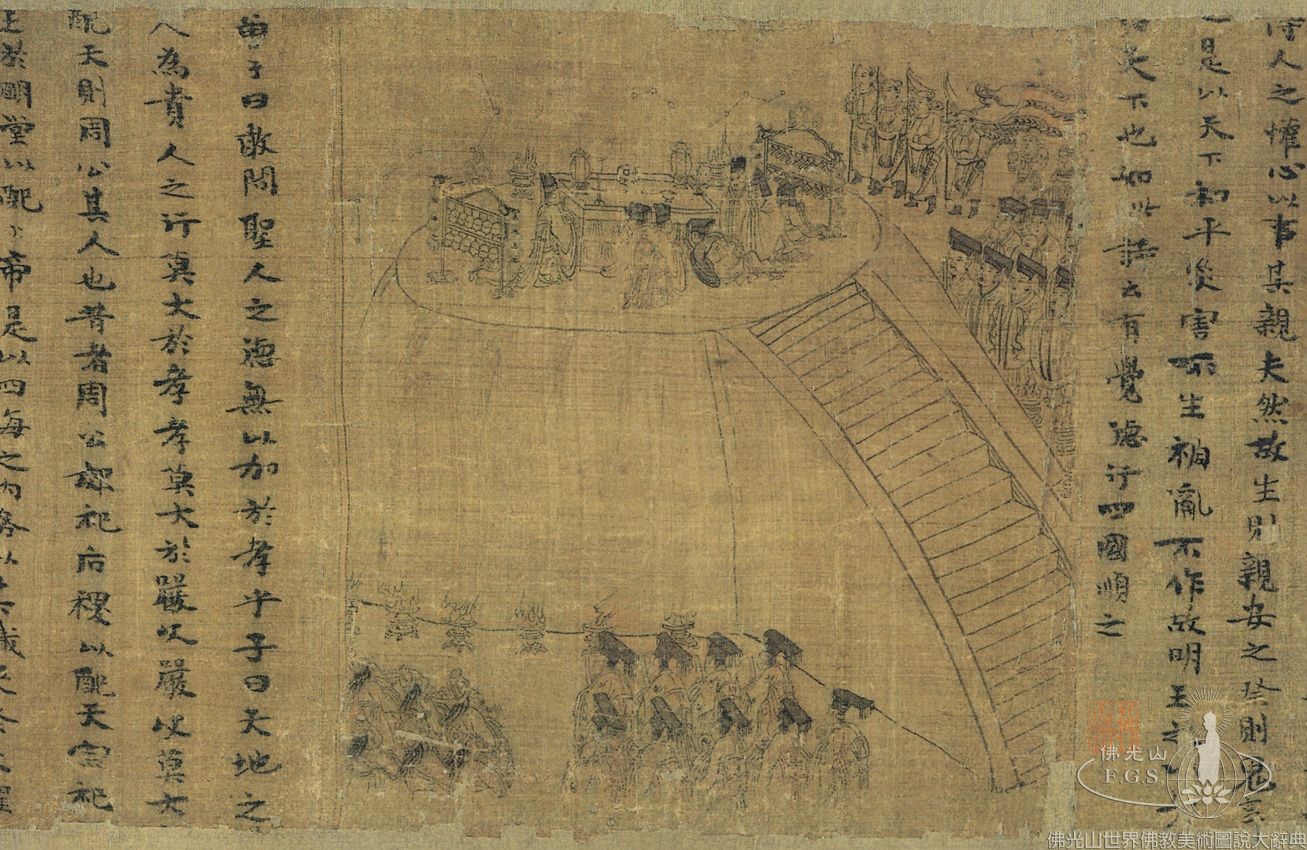 人之懽心以事其親夫然故生則親安之祭則鬼享
是以天下和平災害不生禍亂不作故明王之
天下也如此詩云有覺德行四國順之
曾子曰敢問聖人之德無以加於孝乎子曰天地之
人為貴人之行莫大於孝孝莫大於嚴父嚴父莫大
配天則周公其人也昔者周公郊祀后稷以配天宗祀
王於明堂以配上帝是以四海之內各以其職來祭夫聖
佛光山
F.G.S.
佛光山世界佛教美術圖說大辭典